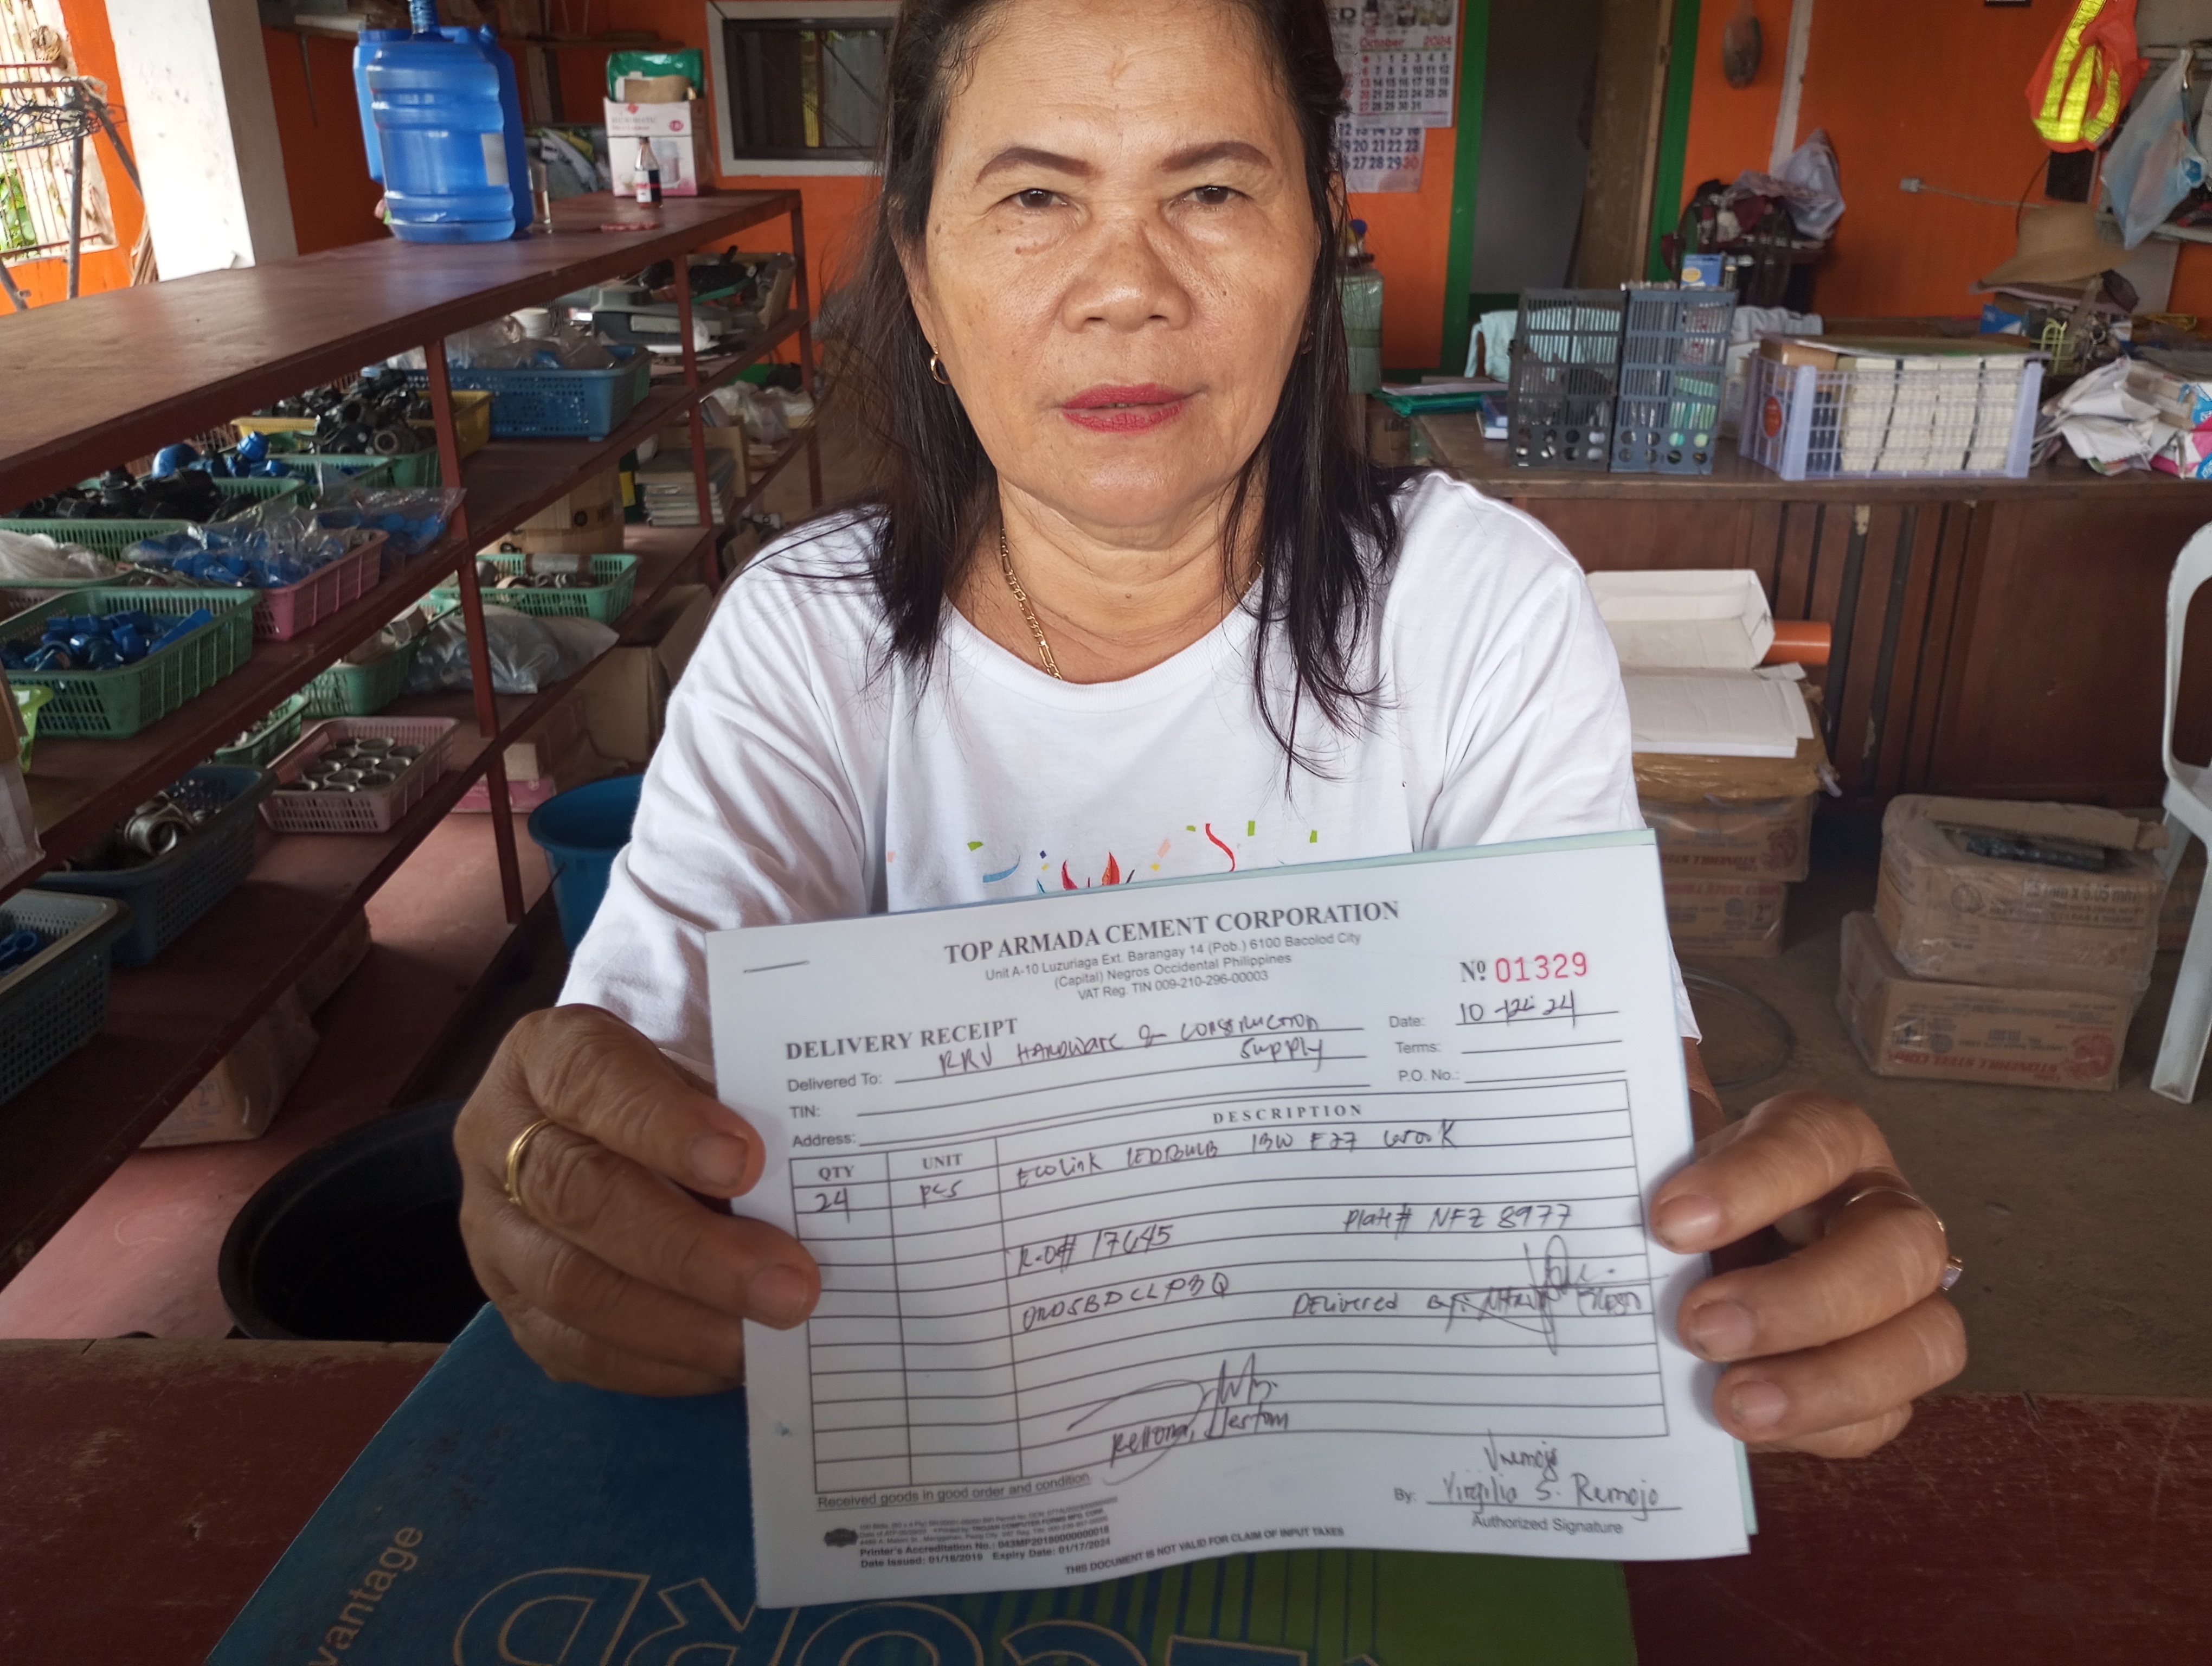 October 2024
1 2 3 4 5
TOP ARMADA CEMENT CORPORATION
Unit A-10 Luzuriaga Ext. Barangay 14 (Pob.) 6100 Bacolod City
(Capital) Negros Occidental Philippines
VAT Reg. TIN 009-210-296-00003
Nº 01329
DELIVERY RECEIPT
Date: 10 24
Delivered To: RRV HARDWARE & CONSTRUCTION
Supply
Terms:
TIN:
P.O. No.:
Address:
QTY UNIT DESCRIPTION
24 pcs Ecolink LEDBULB 13W E27 6500K
R.O# 17645 Plate# NFZ 8977
Delivered By:
Relloma, Jestom
Received goods in good order and condition
Vremojo
By: Virgilia S. Remojo
Authorized Signature
Printer's Accreditation No.: 043MP20190000000018
Date Issued: 01/18/2019 Expiry Date: 01/17/2024
THIS DOCUMENT IS NOT VALID FOR CLAIM OF INPUT TAXES
vantage